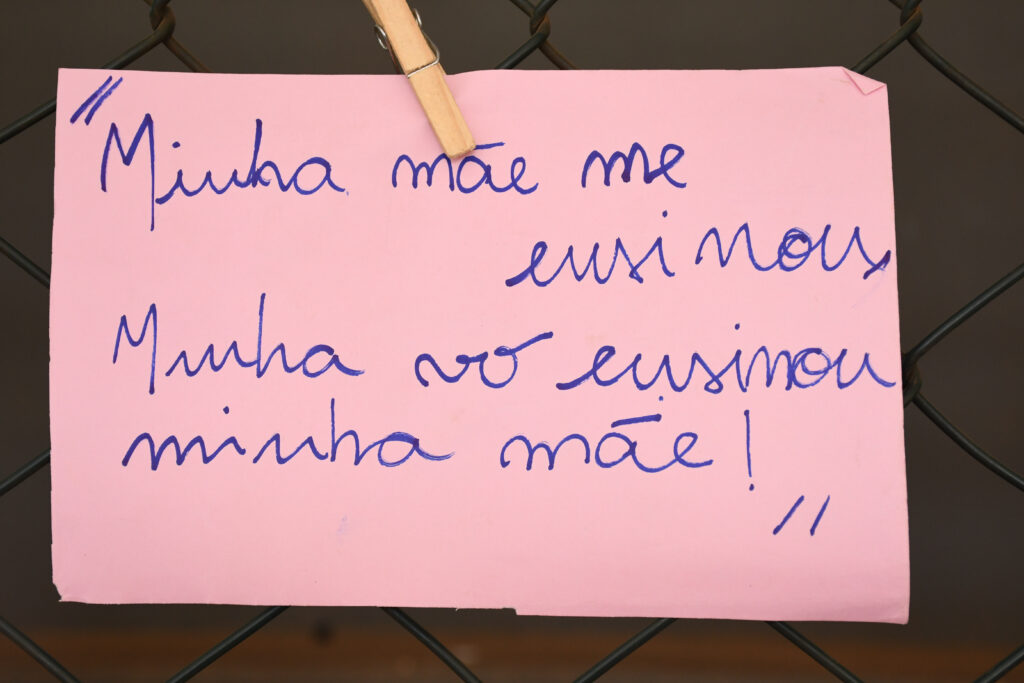 "Minha mãe me
ensinou,
Minha vó ensinou
minha mãe!
"